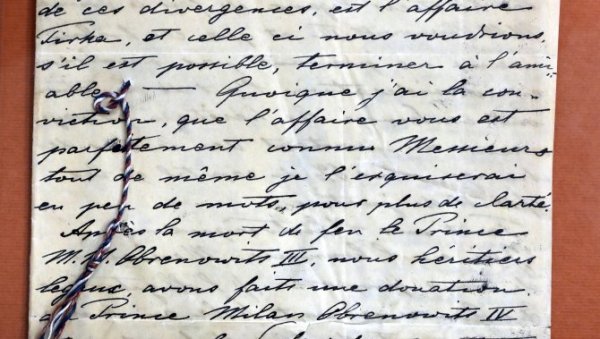 de ces divergences, est l'affaire
Tirka, et celle ci nous voudrions,
s'il est possible, terminer à l'ami-
able. — Quoique j'ai la con-
viction, que l'affaire vous est
parfaitement connue Messieurs
tout de même je l'esquiserai
en peu de mots, pour plus de clarté.
Après la mort de feu le Prince
M. Obrenowits III, nous héritiers
legaux, avons faits une donation
au Prince Milan Obrenowits IV